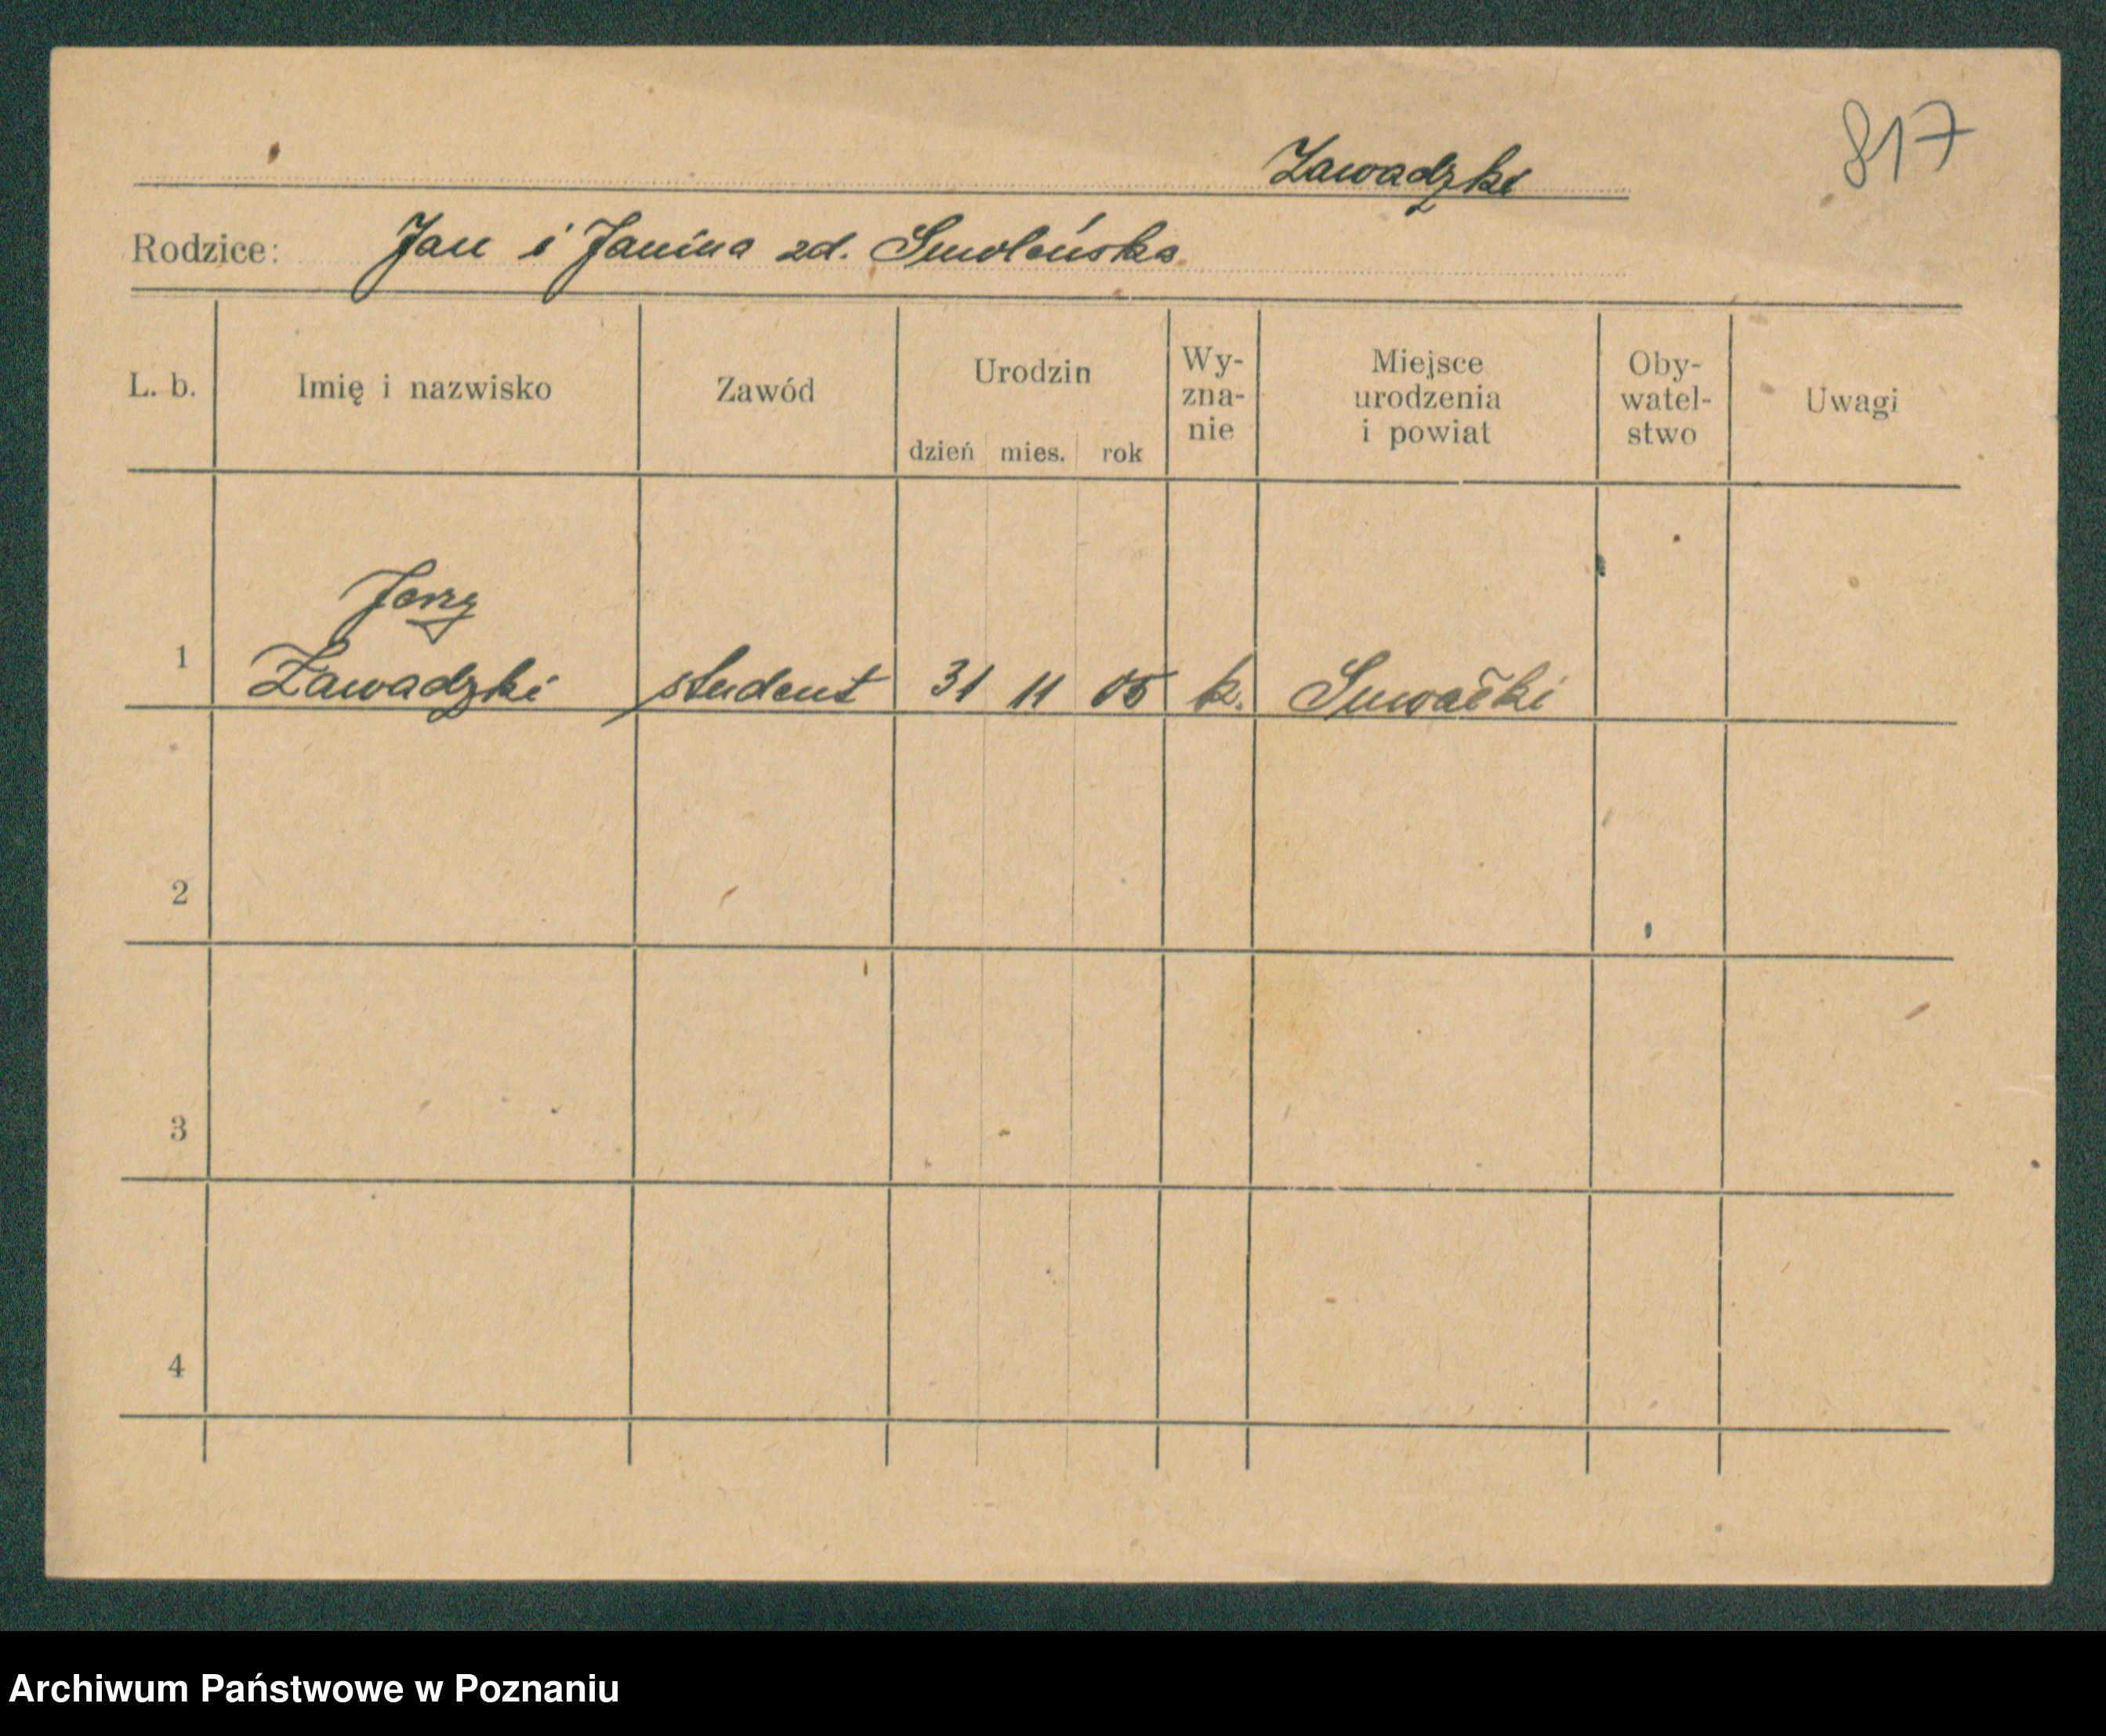 817
Zawadzki
Rodzice: Jan i Janina zd. Smoleńska
L. b. Imię i nazwisko Zawód Urodzin dzień mies. rok Wy-zna-nie Miejsce urodzenia i powiat Oby-watel-stwo Uwagi
Jerzy
1 Zawadzki student 31 11 05 k. Suwałki
2
3
4
Archiwum Państwowe w Poznaniu